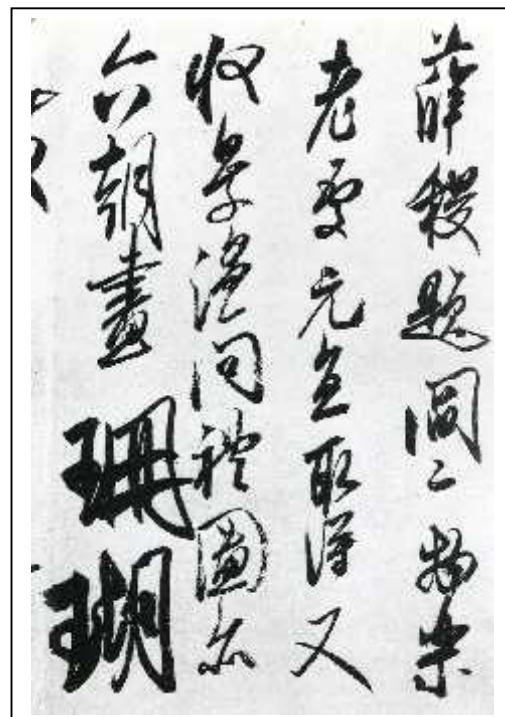 薛稷題閻二物樂
老處元直取得又
收景溫問禮圖亦
六朝畫 珊瑚